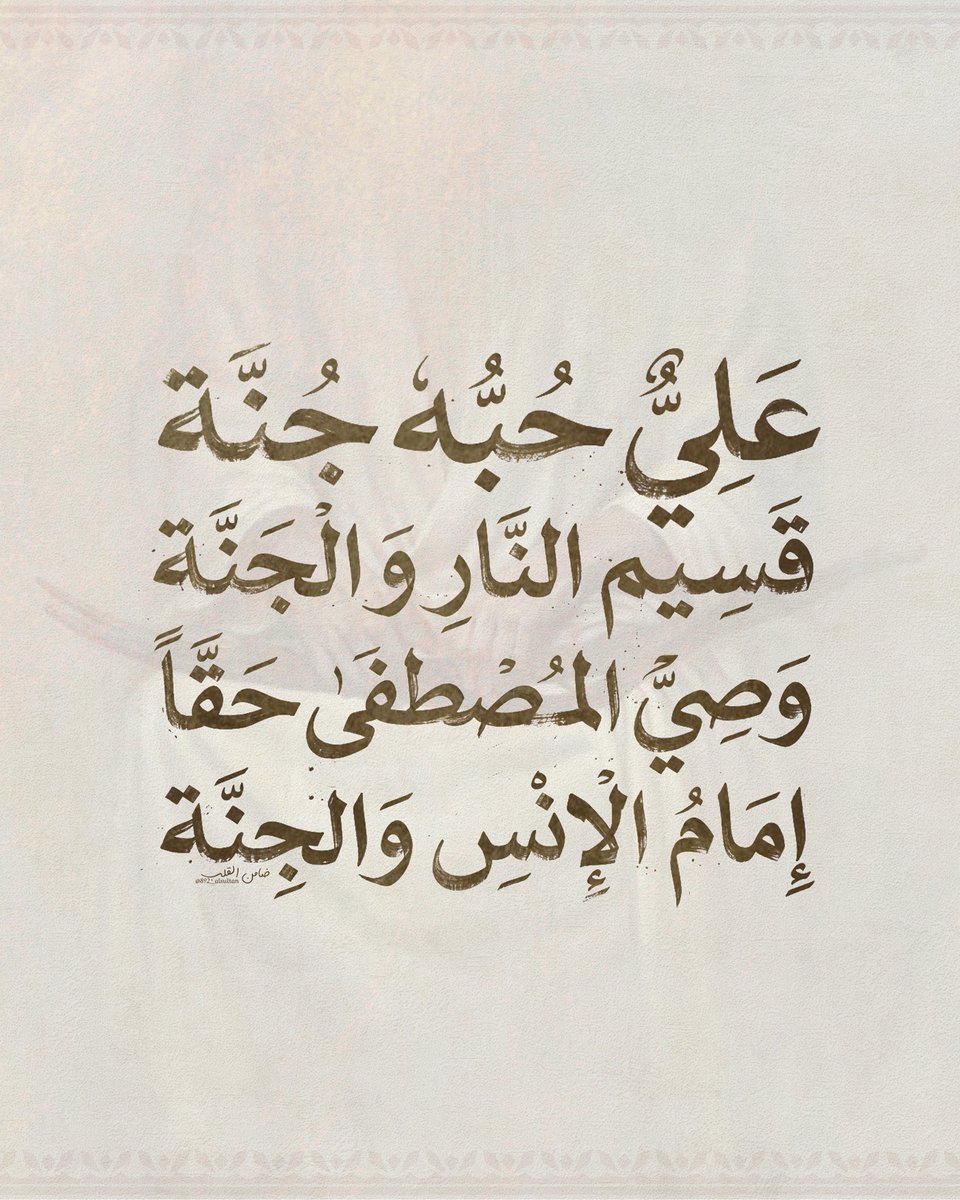 عَلِيٌّ حُبُّهُ جُنَّة
قَسِيم النَّارِ وَالْجَنَّة
وَصِيّ الْمُصْطفَىٰ حَقَّاً
إِمَامُ الْإِنْسِ وَالجِنَّة
ضامن القلب